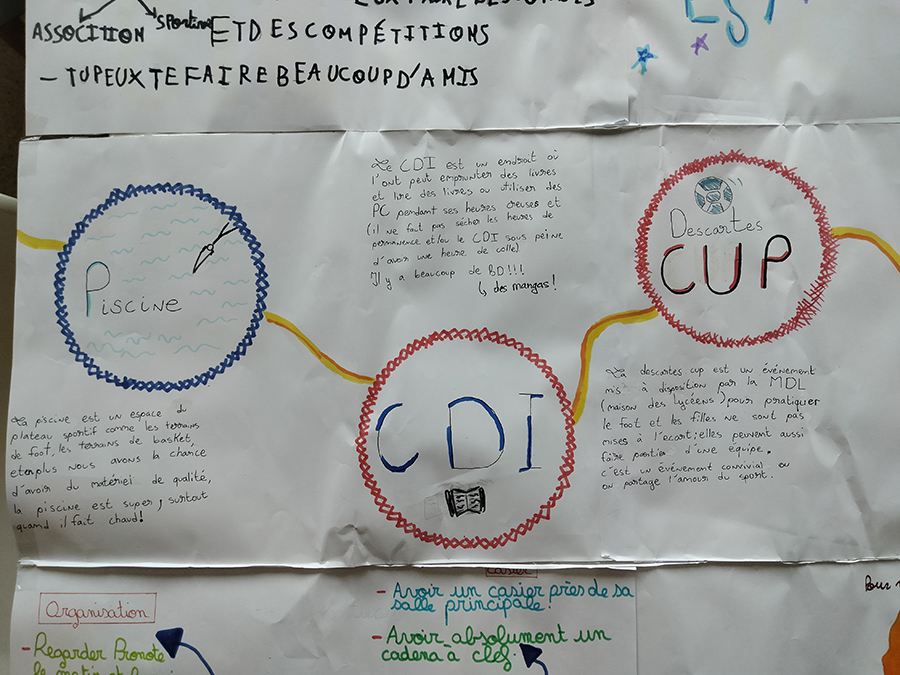 ASSOCITION Sportive ET DES COMPÉTITIONS
- TU PEUX TE FAIRE BEAUCOUP D'AMIS
EST
Piscine
La piscine est un espace du
plateau sportif comme les terrains
de foot, les terrains de basket,
et en plus nous avons la chance
d'avoir du matériel de qualité,
la piscine est super, surtout
quand il fait chaud!
Le CDI est un endroit où
l'ont peut emprunter des livres
et lire des livres ou utiliser des
PC pendant ses heures creuses et
(il ne faut pas sécher les heures de
permanence et/ou le CDI sous peine
d'avoir une heure de colle)
Il y a beaucoup de BD!!!
↳ des mangas!
CDI
Descartes
CUP
La descartes cup est un événement
mis à disposition par la MDL
(maison des lycéens) pour pratiquer
le foot et les filles ne sont pas
mises à l'ecart; elles peuvent aussi
faire partier d'une équipe.
c'est un événement convivial ou
on partage l'amour du sport.
Organisation
- Regarder Pronote
le matin et
Casier
- Avoir un casier près de sa
salle principale!
- Avoir absolument un
cadena à clef.